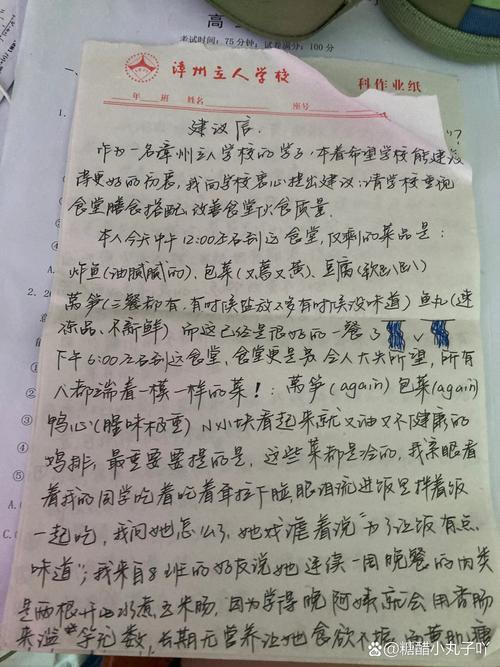 高
考试时间：75分钟；试卷满分：100分
漳州立人学校
科作业纸
年 班 姓名 座号
建议信.
作为一名漳州立人学校的学子,本着希望学校能建设
得更好的初衷,我向学校衷心提出建议:请学校重视
食堂膳食搭配,改善食堂伙食质量.
本人今天中午12:00左右到达食堂,仅剩的菜品是:
炸鱼(油腻腻的).包菜(又蔫又黄).豆腐(软趴趴)
莴笋(三餐都有,有时候盐放多有时候没味道)鱼丸(速
冻品、不新鲜)而这已经是很好的一餐了
下午6:00左右到达食堂,食堂更是 令人大失所望,所有
人都端着一模一样的菜!:莴笋(again)包菜(again)
鸭心(腥味极重)小小块看起来就又油又不健康的
鸡排,最重要要提的是,这些菜都是冷的,我亲眼看
着我的同学吃着吃着耷拉下脸,眼泪流进饭里拌着饭
一起吃,我问她怎么了,她戏谑着说"为了让饭有点
味道";我来自8班的好友说她连续一周晚餐的肉类
是两根开水煮玉米肠,因为学得晚阿姨就会用香肠
来 数,长期无营养让她食欲不振
@糖醋小丸子吖